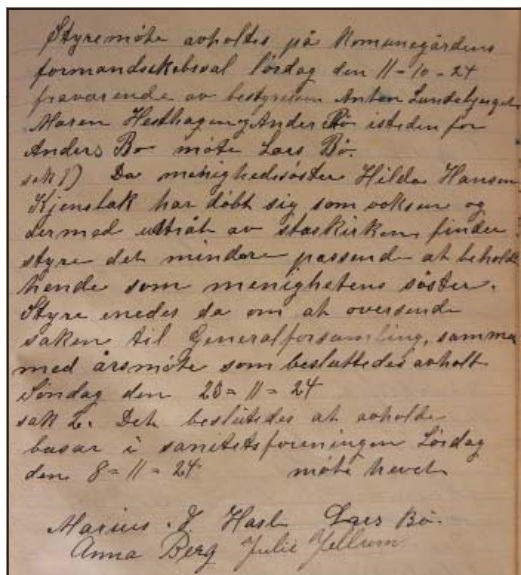 Styremöte avholtes på Komunegårdens
formandskabsval lördag den 11-10-24
fraværende av bestyrelsen Anton Lundebjerget
Maren Hesthagen, Anders Bö isteden for
Anders Bo möte Lars Bö.
sak 1) Da menighedssöster Hilda Hansen
Kjenstak har döbt sig som voksen og
dermed utträt av staskirken, finder
styre det mindre passende at beholde
hende som menighetens söster.
Styre enedes da om at oversende
saken til Generalforsamling, samme
med årsmöte som besluttedes avholt
Söndag den 23=11=24
sak 2. Det beslutedes at avholde
basar i sanitetsforeningen Lördag
den 8=11=24 möte hevet
Marius. J Hasl Lars Bö.
Anna Berg Julie Jellum